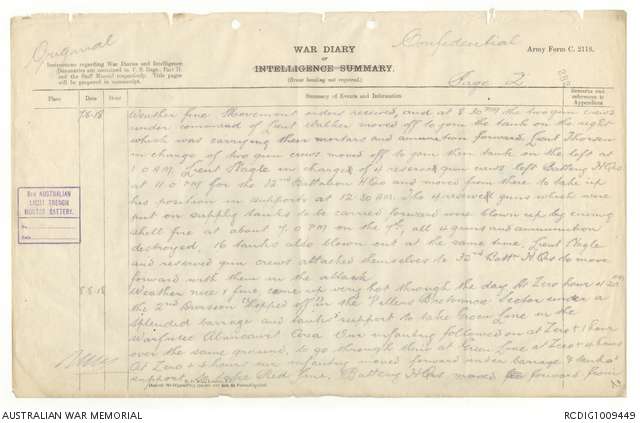 Original
Confidential
Army Form C. 2118.
WAR DIARY
or
INTELLIGENCE SUMMARY.
(Erase heading not required.)
Instructions regarding War Diaries and Intelligence
Summaries are contained in F. S. Regs., Part II.
and the Staff Manual respectively. Title pages
will be prepared in manuscript.
Page 2
Place
Date
Hour
Summary of Events and Information
Remarks and
references to
Appendices
7.8.18 Weather fine. Movement orders received, and at 8.30 PM the two gun crews
under command of Lieut moved off to join the tank on the right
which was carrying their mortars and ammunition forward. Lieut Thorsen
in charge of two gun crews moved off to join their tank on the left at
1.0 AM. Lieut Nagle in charge of 4 reserve guns crews left Battery HQrs
at 11.0 PM for the 32nd Battalion HQrs and moved from there to take up
his position in supports at 12.30 AM. The 4 reserve guns which were
put on supply tanks to be carried forward were blown up by enemy
shell fire at about 7.0 PM on the 7th, all 4 guns and ammunition
destroyed, 16 tanks also blown out at the same time. Lieut Nagle
and reserve gun crews attached themselves to 32nd Battn HQrs to move
forward with them in the attack.
8.8.18 Weather nice & fine, came up very hot through the day. At Zero hour 4.20 AM
the 2nd Division "Hopped off" in the Villers Bretonneux Sector under a
splendid barrage and tanks support to take Green Line in the
Warfusee Abancourt Area. Our infantry followed on at Zero + 1 hour
over the same ground, to go through them at Green Line at Zero + 4 hours
At Zero + 4 hours our infantry moved forward under barrage & tanks
support to take Red Line. Battery HQrs moved forward from
8TH AUSTRALIAN
LIGHT TRENCH
MORTAR BATTERY.
No.
Date
AUSTRALIAN WAR MEMORIAL
RCDIG1009449